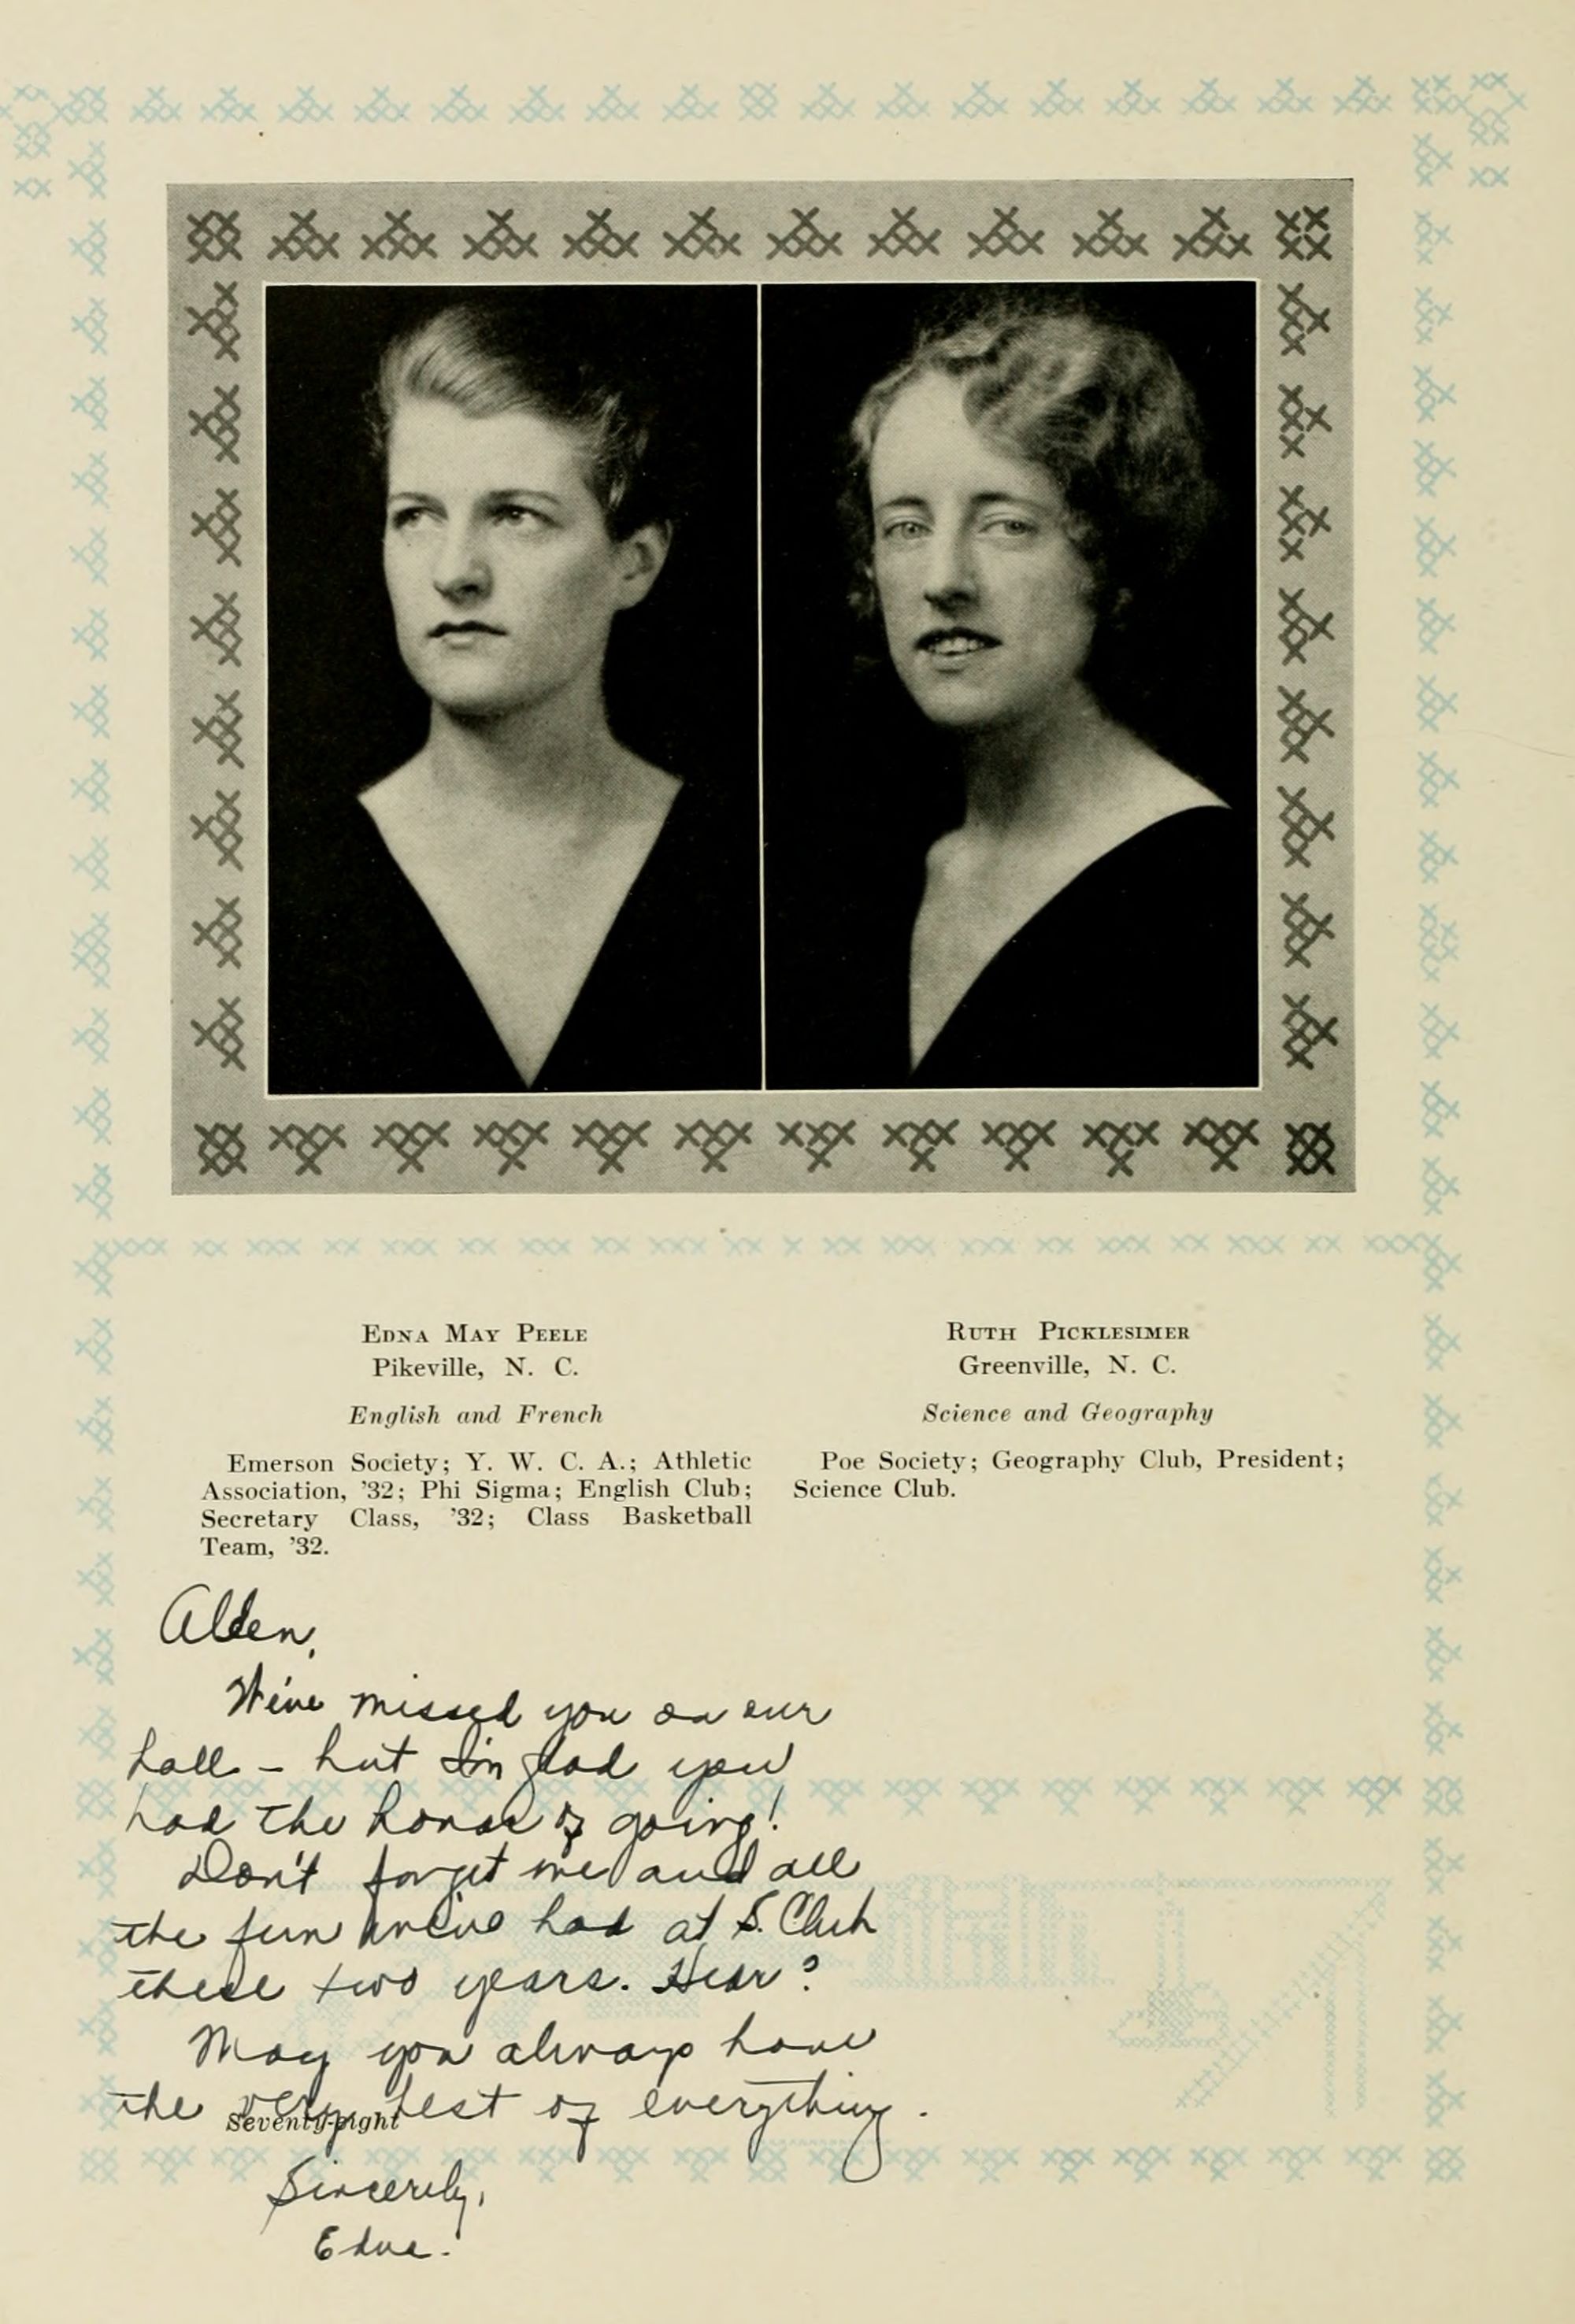 EDNA MAY PEELE
Pikeville, N. C.
English and French
Emerson Society; Y. W. C. A.; Athletic
Association, '32; Phi Sigma; English Club;
Secretary Class, '32; Class Basketball
Team, '32.
RUTH PICKLESIMER
Greenville, N. C.
Science and Geography
Poe Society; Geography Club, President;
Science Club.
Alden,
We've missed you on our
hall – but I'm glad you
had the honor of going!
Don't forget me and all
the fun we've had at S. Club
these two years. Hear?
May you always have
the very best of everything.
Seventy-eight
Sincerely,
Edna.